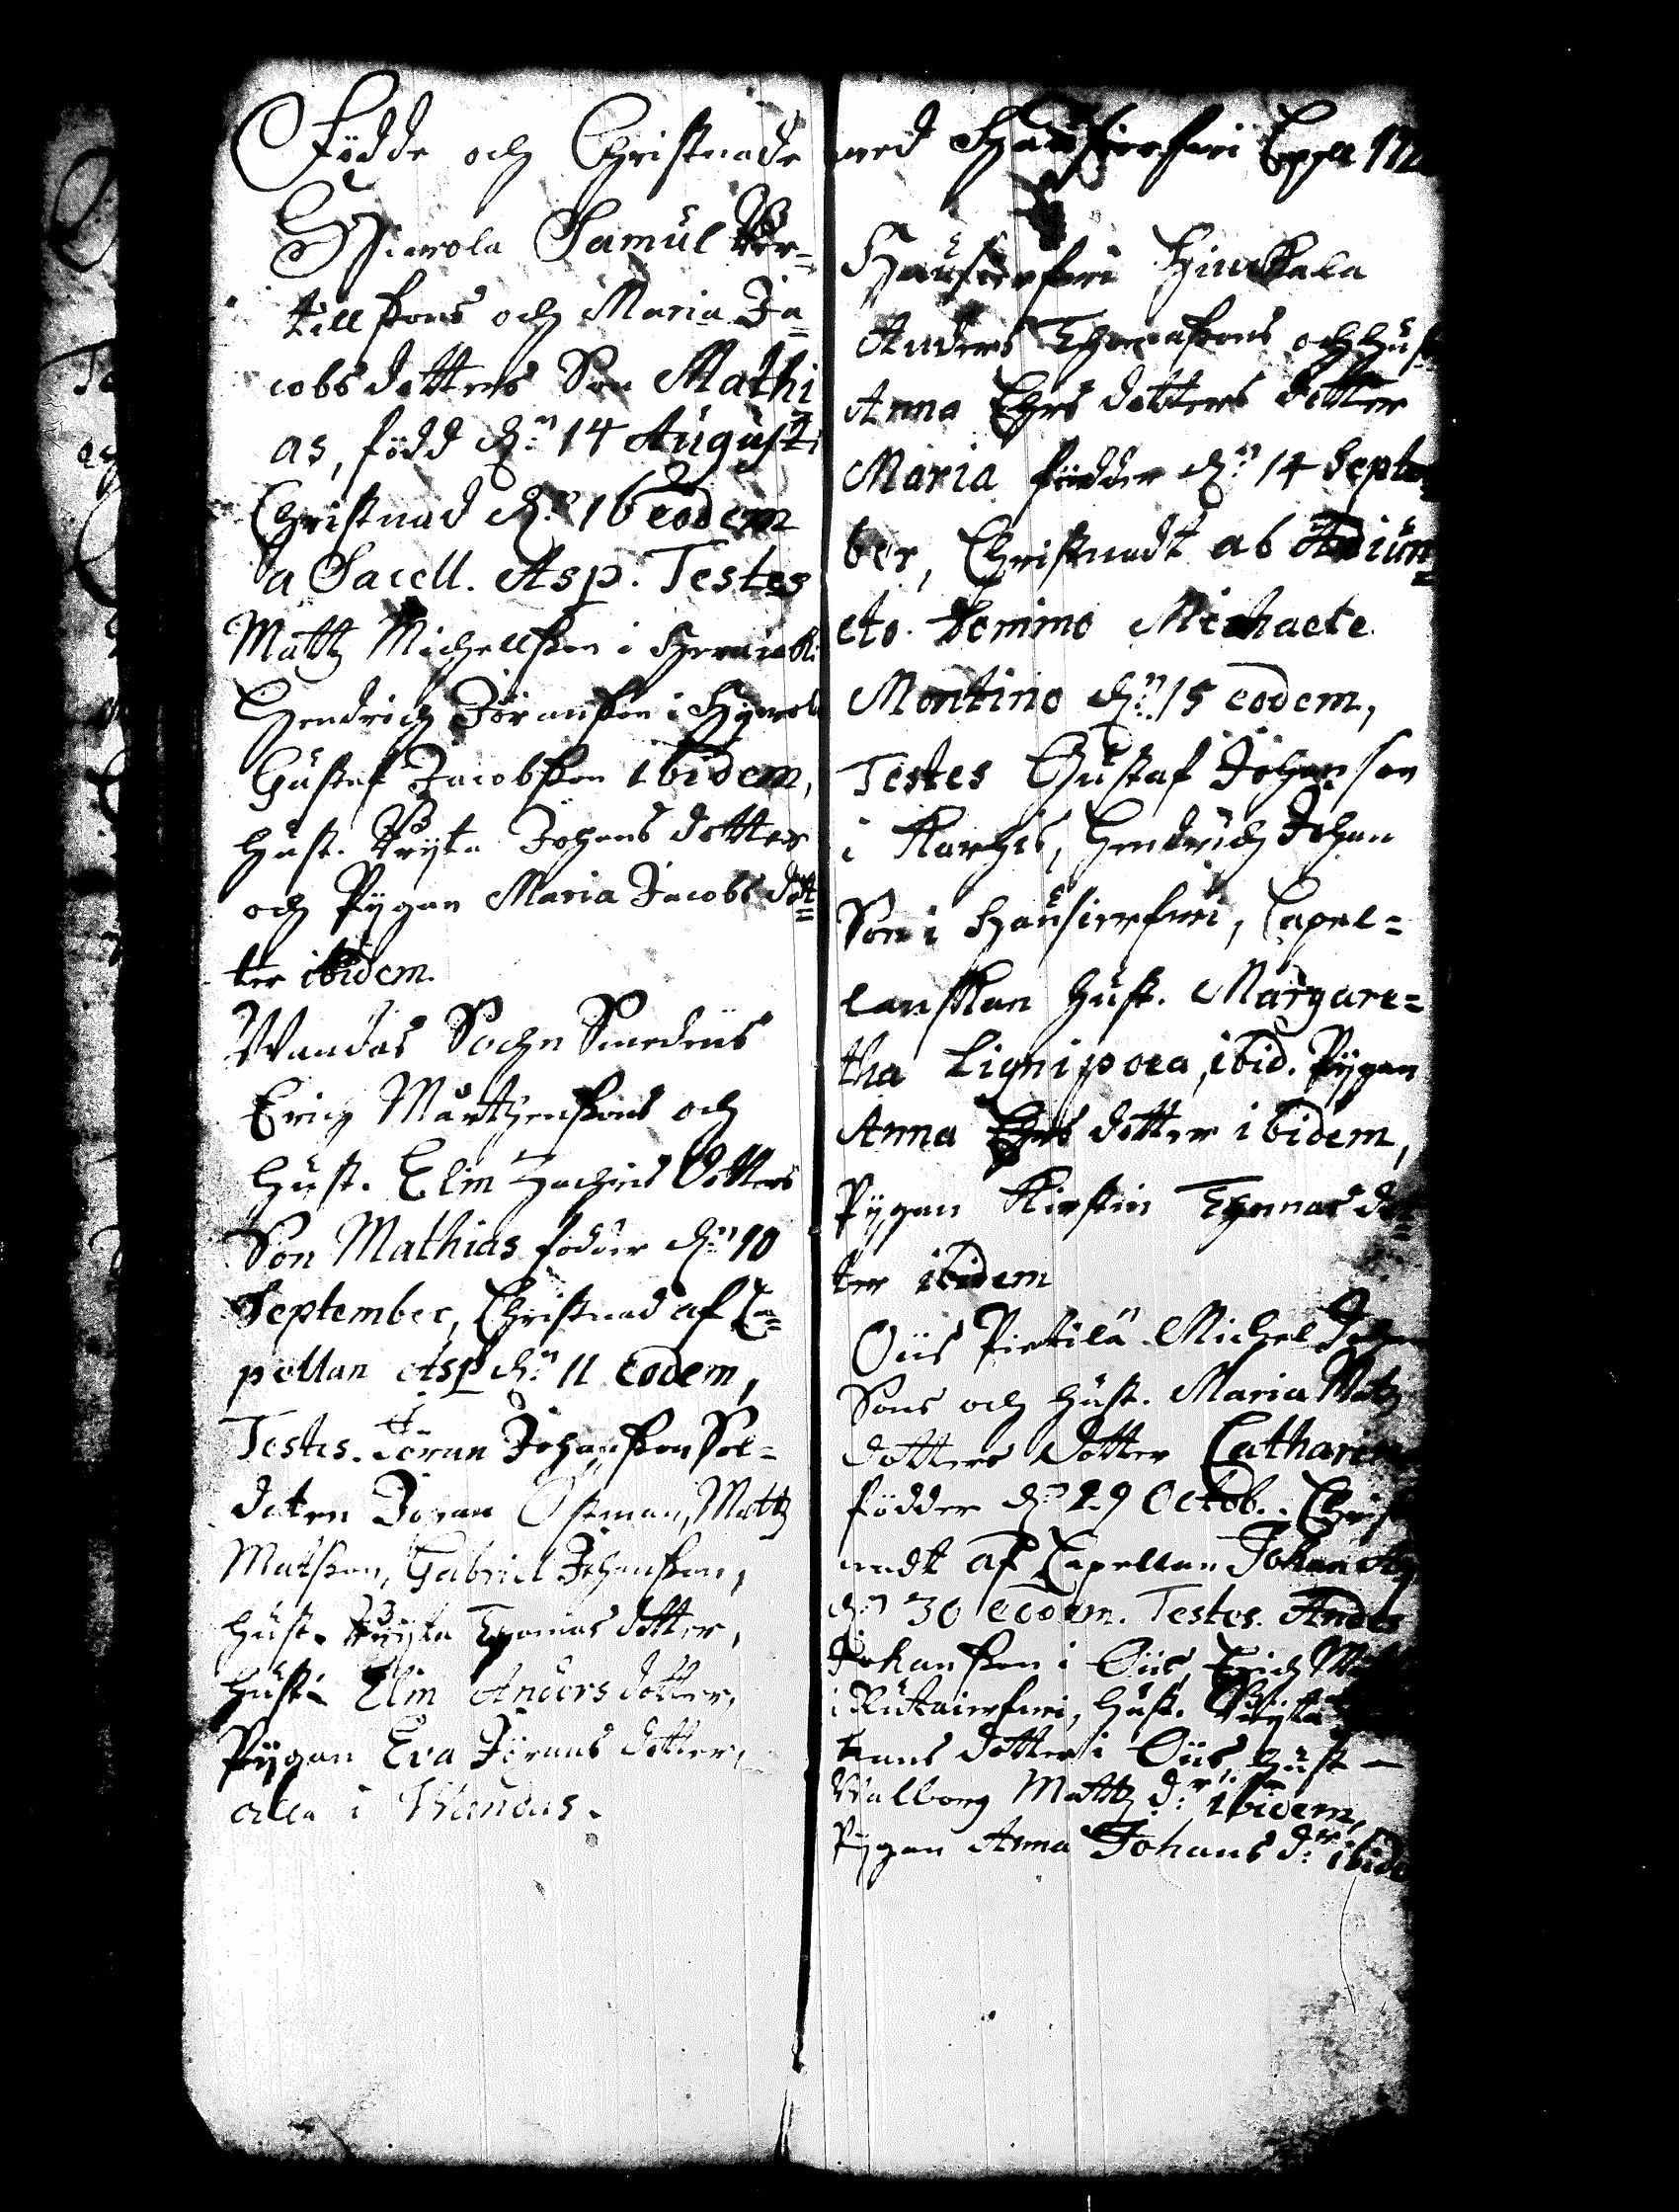 Födde och Christnade
Hierola Samuel Ber=
till sons och Maria Ja=
cobs dotters Son Mathi
as, född d:n 14 Augusti
Christnad d:n 16 eodem
a Sacell. Asp. Testes
Mattz Michellson i
Hendrich Jöranson i
Gustaf Jacobson ibidem,
hust. Bryta Johans dotter
och Pygan Maria Jacobs dot=
ter ibidem.
Wandas Sochn Smedens
Erich Mårtzensons och
Hust. Elin Dotters
Son Mathias födder d:n 10
September, Christnad af Ca=
pellan Asp d:n 11 eodem,
Testes. Jöran Johanson Sol=
daten Jöran Östman, Mattz
Matson, Gabriel Johanson,
hust. Bryta Thomas dotter,
hust. Elin Anders dotter,
Pygan Eva Jörans dotter,
alla i Wandas.
wed Hausierfwi Cappell
Hausierfwi
Anders Thomasons och Hust
Anna dotters dotter
Maria födder d:n 14 Septem=
ber, Christnadt ab Adiun=
cto Domino Michaele
Montino d:n 15 eodem,
Testes Gustaf Johanson
i Karhis, Hendrich Johan
Son i Hausierfwi, Capel=
lanskan hust. Margare=
tha Lignipoea, ibid. Pygan
Anna dotter ibidem,
Pygan Kirstin Thomas dot=
ter ibidem
Öiis Pietilä Michel Johan
Sons och hust. Maria Mattz
dotters dotter Catharina
födder d:n 29 Octob. Christ
nadt af Capellan Johan Asp
d:n 30 eodem. Testes. Anders
Johanson i Öiis, Erich
i Rutaierfwi, hust. Bryta
hans dotter i Öiis, hust
Walborg Mattz d:r ibidem,
Pygan Anna Johans d:r ibid